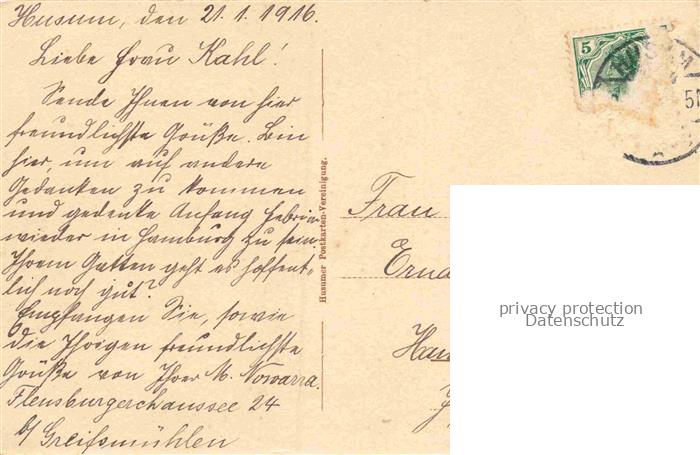 Husum, den 21.1.1916.
Liebe Frau Kahl!
Sende Ihnen von hier
freundlichste Grüße. Bin
hier, um auf andere
Gedanken zu kommen
und gedenke Anfang Februar
wieder in Hamburg zu sein.
Ihrem Gatten geht es hoffent-
lich noch gut?
Empfangen Sie, sowie
die Ihrigen freundlichste
Grüße von Ihrer M. Nowarra.
Flensburgerchaussee 24
b/ Greifsmühlen
Husumer Postkarten-Vereinigung.
5
HUSUM
5N
Frau
Erna
Ham
privacy protection
Datenschutz